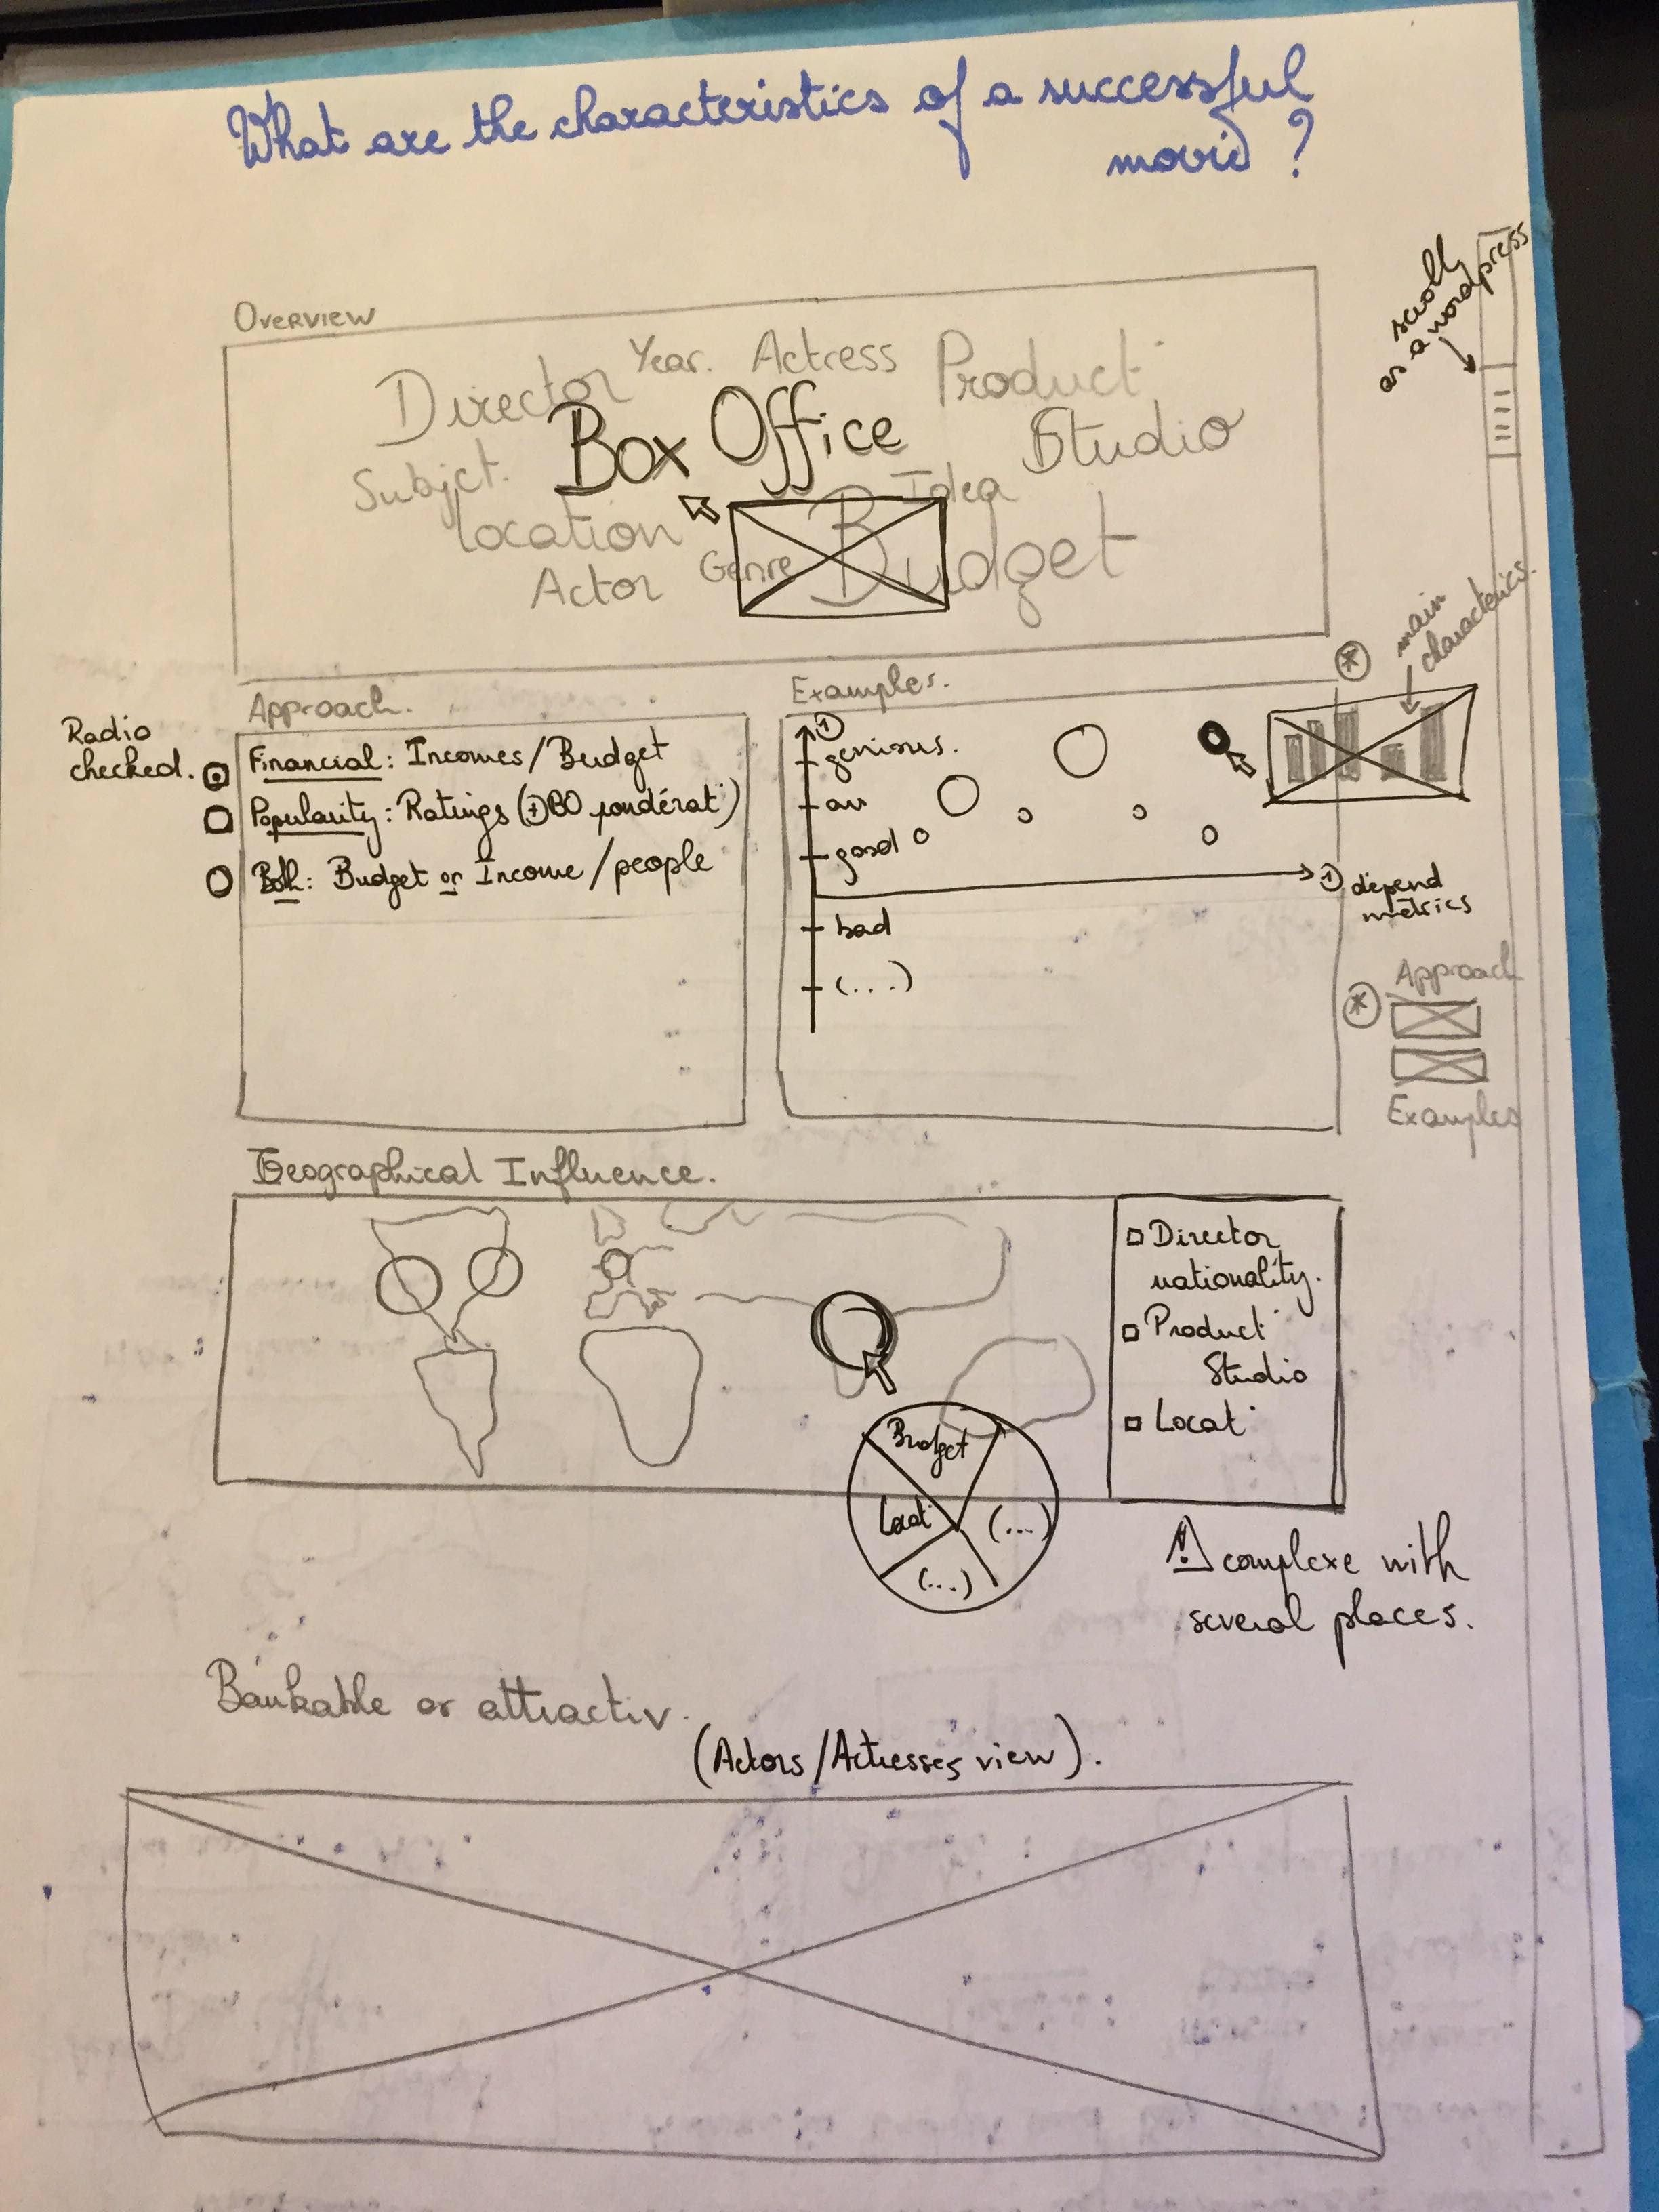 What are the characteristics of a successful
movie ?
scroll
as a wordpress
Overview
Director Year. Actress Product°
Subject. Box Office Studio
Location Idea
Actor Genre Budget
main
characterics.
Approach.
Examples.
Radio
checked.
Financial: Incomes/Budget
Popularity: Ratings (+ BO pondérat°)
Both: Budget or Income/people
genious.
aw
good
bad
(...)
depend
metrics
Approach
Examples
Geographical Influence.
Director
nationality.
Product°
Studio
Locat°
Budget
Locat°
(...)
(...)
! complexe with
several places.
Bankable or attractiv.
(Actors/Actresses view).